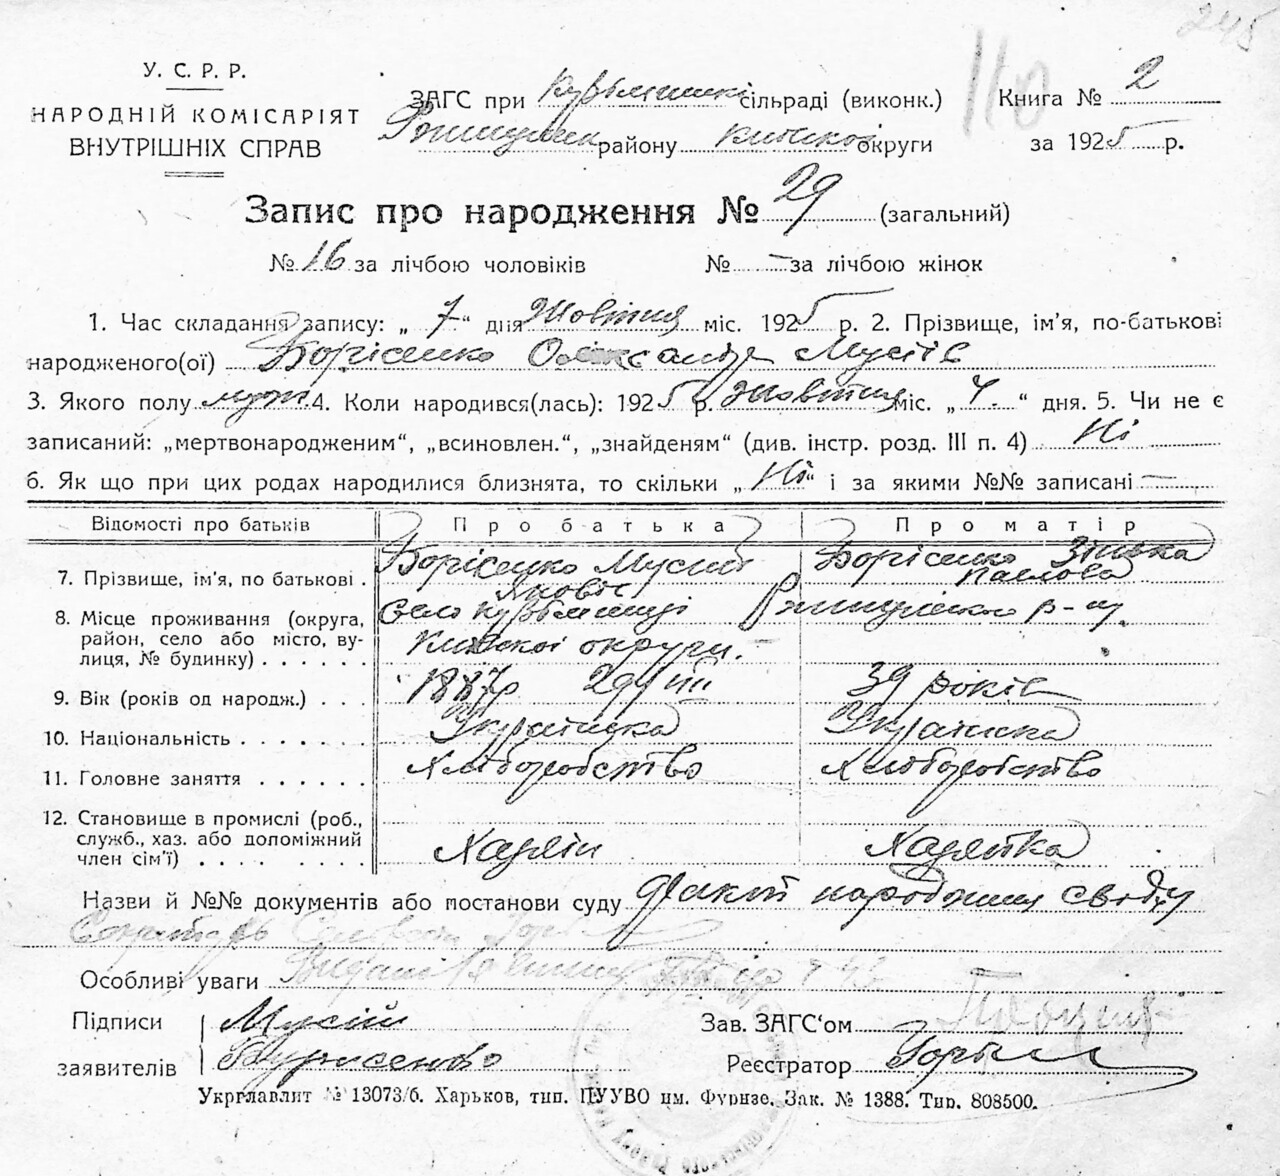 245
110
У. С. Р. Р.
НАРОДНІЙ КОМІСАРІЯТ
ВНУТРІШНІХ СПРАВ
ЗАГС при сільраді (виконк.)
району округи
Книга № 2
за 1925 р.
Запис про народження № 29 (загальний)
№ 16 за лічбою чоловіків № — за лічбою жінок
1. Час складання запису: „ 7 “ дня Жовтня міс. 1925 р. 2. Прізвище, ім'я, по-батькові
народженого(ої) Борісенко Олександр Мусіїв
3. Якого полу муж. 4. Коли народився(лась): 1925 р. Жовтня міс. „ 4. “ дня. 5. Чи не є
записаний: „мертвонародженим“, „всиновлен.“, „знайденям“ (див. інстр. розд. III п. 4) Ні
6. Як що при цих родах народилися близнята, то скільки „ Ні “ і за якими №№ записані —
Відомості про батьків Про батька Про матір
7. Прізвище, ім'я, по батькові . Борісенко Мусій Яковів Борісенко Зінька Павлова
8. Місце проживання (округа, район, село або місто, вулиця, № будинку) . . . . . . Село р-ну.
округи. —
9. Вік (років од народж.) . . . 1887р 39 років
10. Національність . . . . . . . Українська Українка
11. Головне заняття . . . . . . Хліборобство Хліборобство
12. Становище в промислі (роб., служб., хаз. або допоміжний член сім'ї) . . . . . . . . Хазяїн Хазяйка
Назви й №№ документів або постанови суду народження
Секретарь
Особливі уваги
Підписи Мусій Зав. ЗАГС‘ом
заявителів Реєстратор
Укрглавлит № 13073/б. Харьков, тип. ПУУВО им. Фрунзе. Зак. № 1388. Тир. 808500.